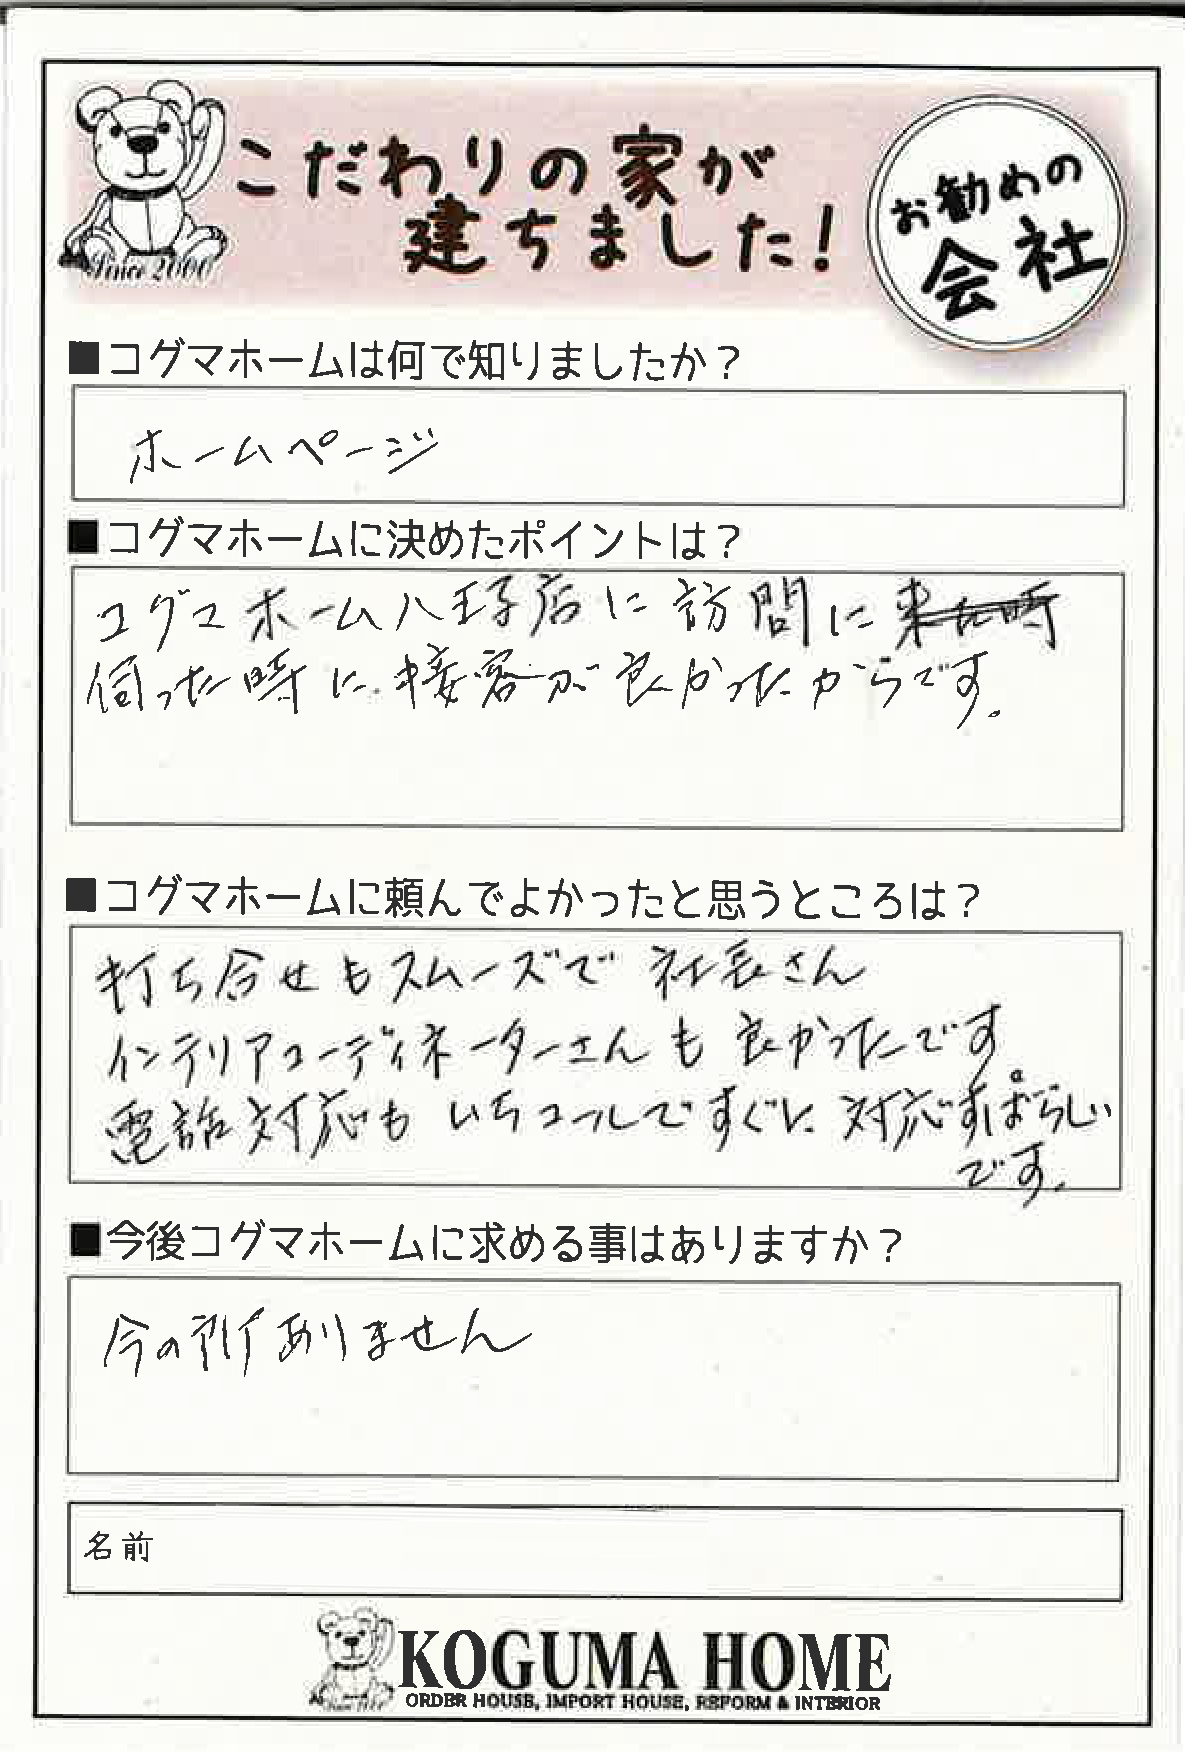 こだわりの家が
建ちました!
お勧めの
会社
Since 2000
■コグマホームは何で知りましたか?
ホームページ
■コグマホームに決めたポイントは?
コグマホーム八王子店に訪問に来た時
伺った時に接客が良かったからです。
■コグマホームに頼んでよかったと思うところは?
打ち合せもスムーズで 社長さん
インテリアコーディネーターさんも 良かったです。
電話対応も いちコールですぐに 対応すばらしい
です。
■今後コグマホームに求める事はありますか?
今の所ありません
名前
KOGUMA HOME
ORDER HOUSE, IMPORT HOUSE, REFORM & INTERIOR